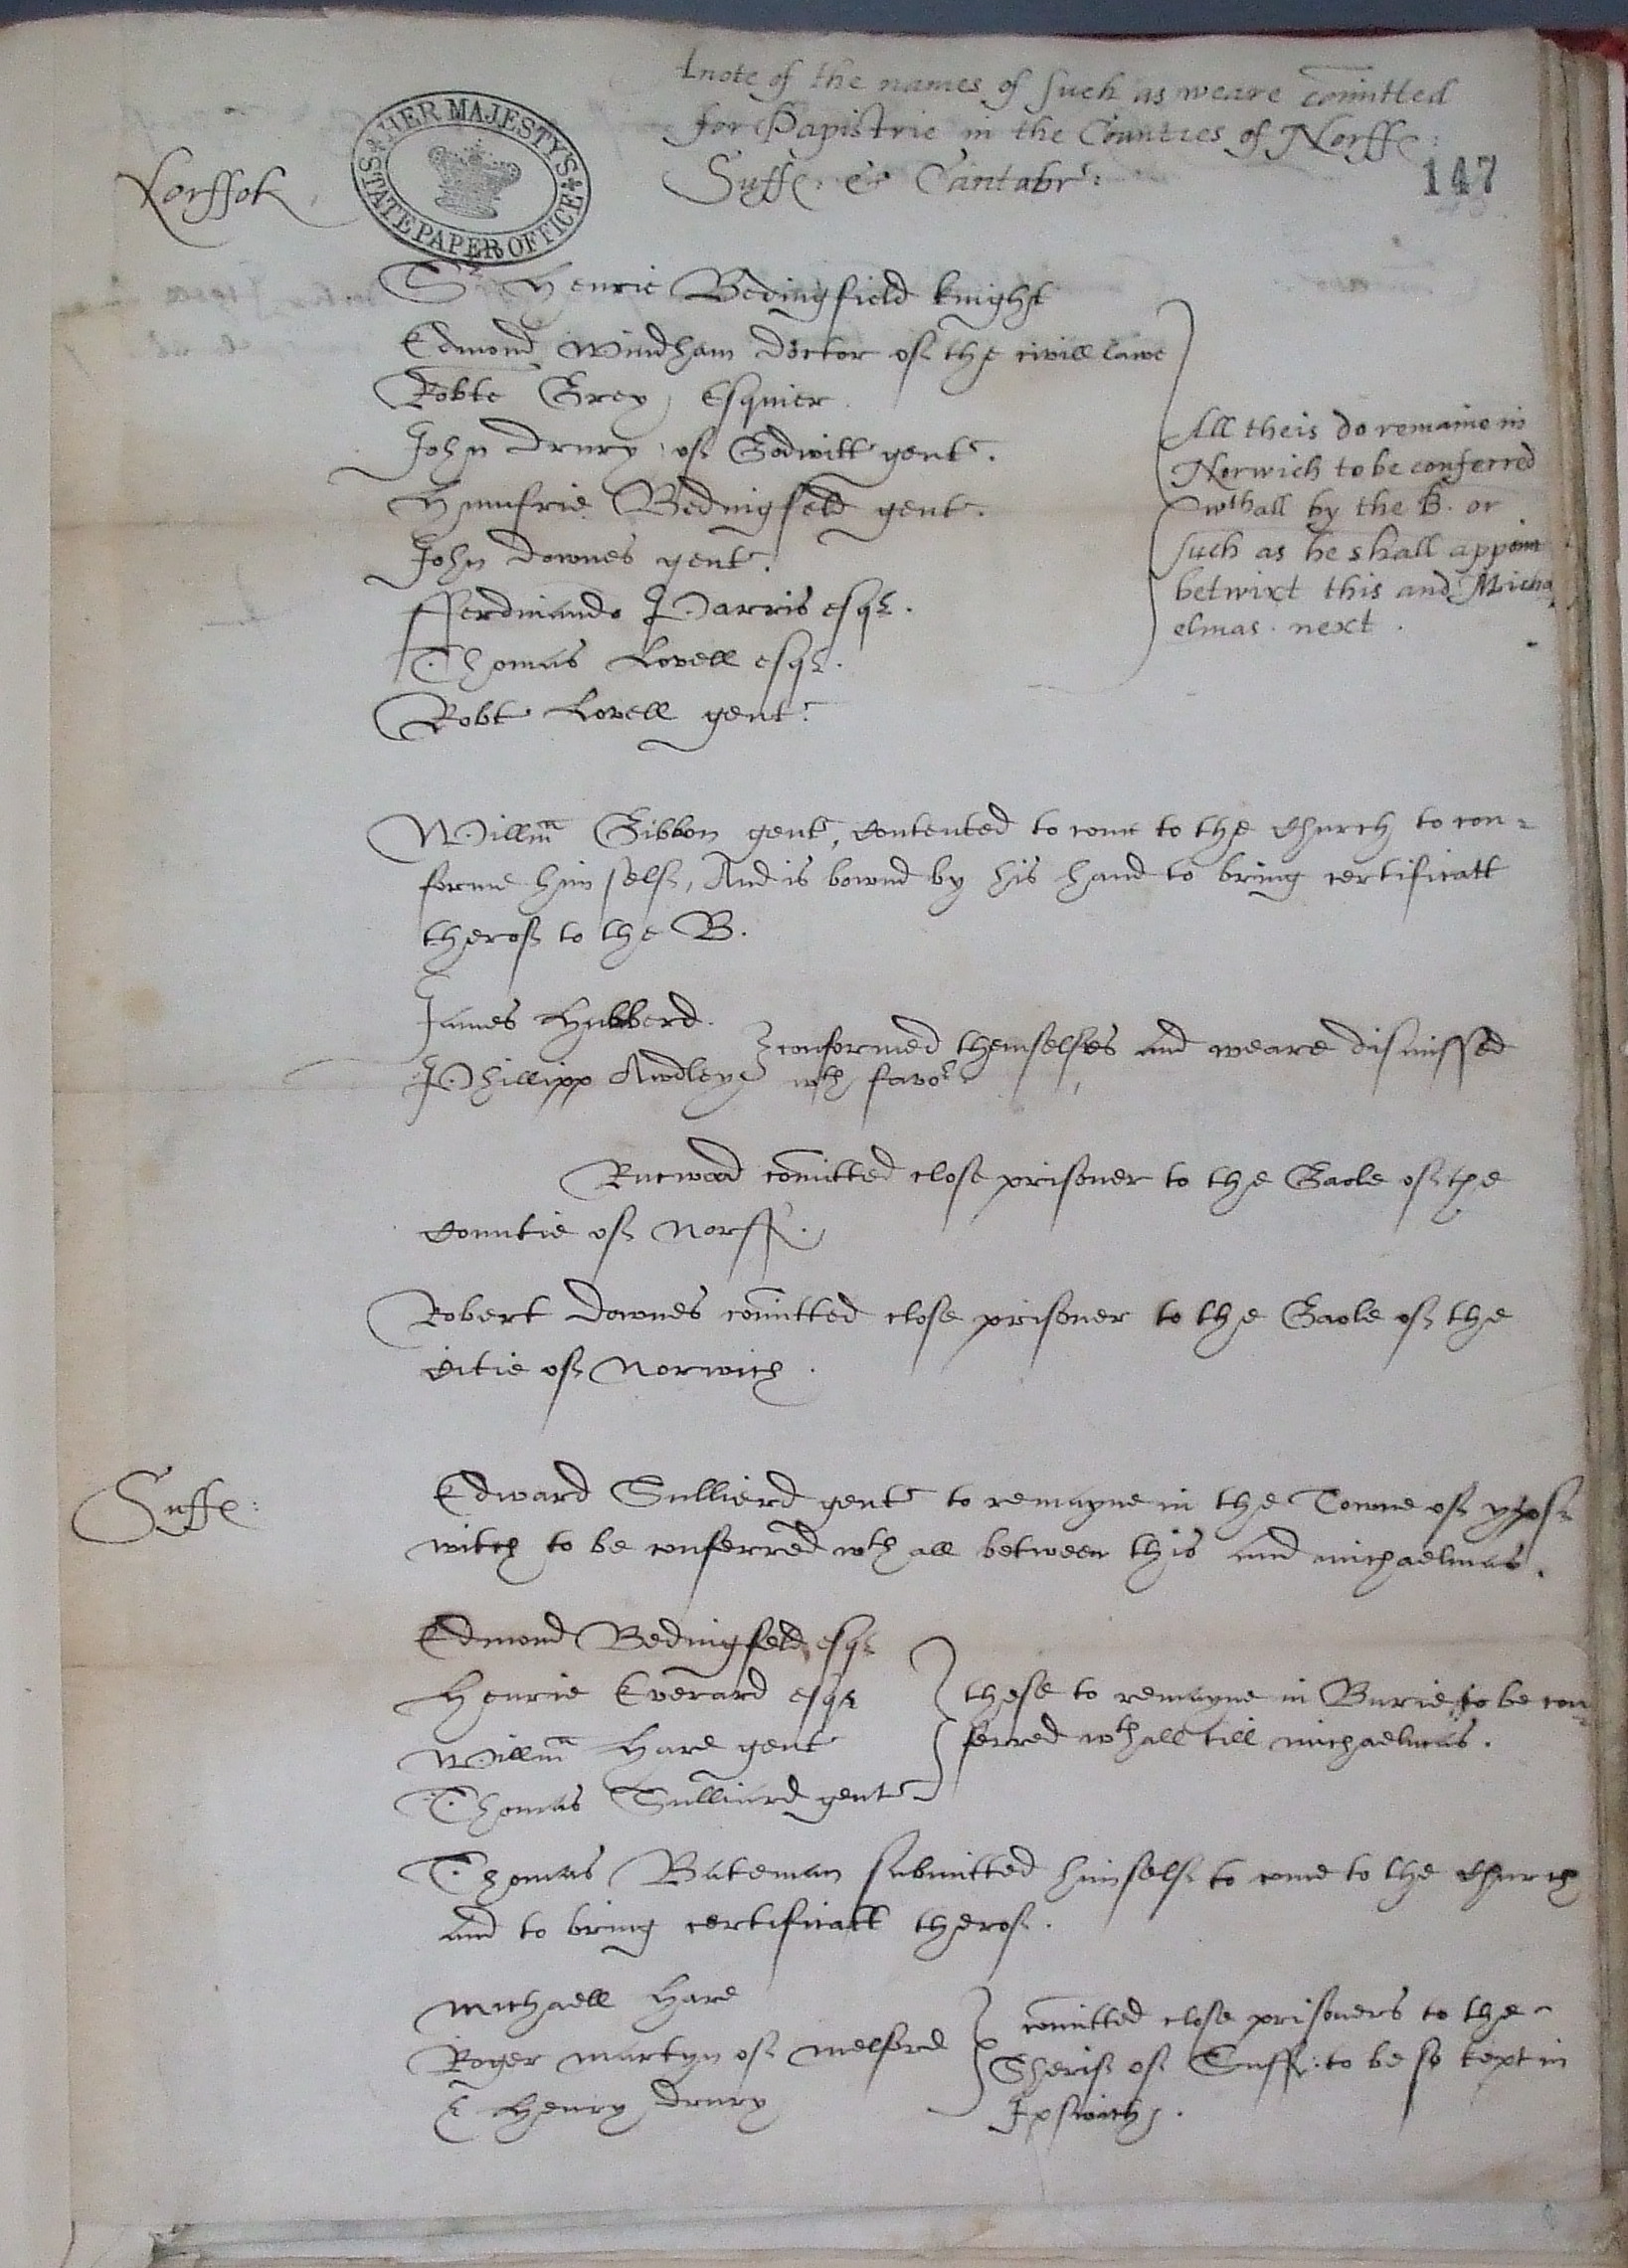 A note of the names of such as weare comitted
for Papistrie in the Counties of Norff:
Suff: & Cantabr:
147
HER MAJESTY'S STATE PAPER OFFICE
Norffolk
Sr Henrie Bedingfield knight
Edmond Windham doctor of the civill lawe
Robte Grey Esquier
John Drury of Godwitt gent.
Humfrie Bedingfeld gent.
John Downes gent.
Ferdinando Parris esqr.
Thomas Lovell esqr.
Robt Lovell gent:
All theis do remaine in
Norwich to be conferred
wthall by the B. or
such as he shall appoint
betwixt this and Micha
elmas next.
Willm Gibbon gent, contented to come to the Church to con=
forme him self, And is bownd by his hand to bring certificatt
therof to the B.
James Hubberd.
Phillipp Awdley
conformed themselfes and weare dismissed
wth favor
Rucwood comitted close prisoner to the Gaole of the
Countie of Norff.
Robert Downes comitted close prisoner to the Gaole of the
Citie of Norwich.
Suff:
Edward Sullierd gent to remayne in the Towne of yps=
witch to be conferred wth all between this and michaelmas.
Edmond Bedingfeld esqr
Henrie Everard esqr
Willm Hare gent
Thomas Sulliard gent
these to remayne in Burie to be con=
ferred wthall till michaelmas.
Thomas Bateman submitted himself to come to the Church
and to bring certificatt therof.
Michaell Hare
Roger Martyn of Melford
& Henry Drury
comitted close prisoners to the
Sherif of Suff: to be so kept in
Ipswich.